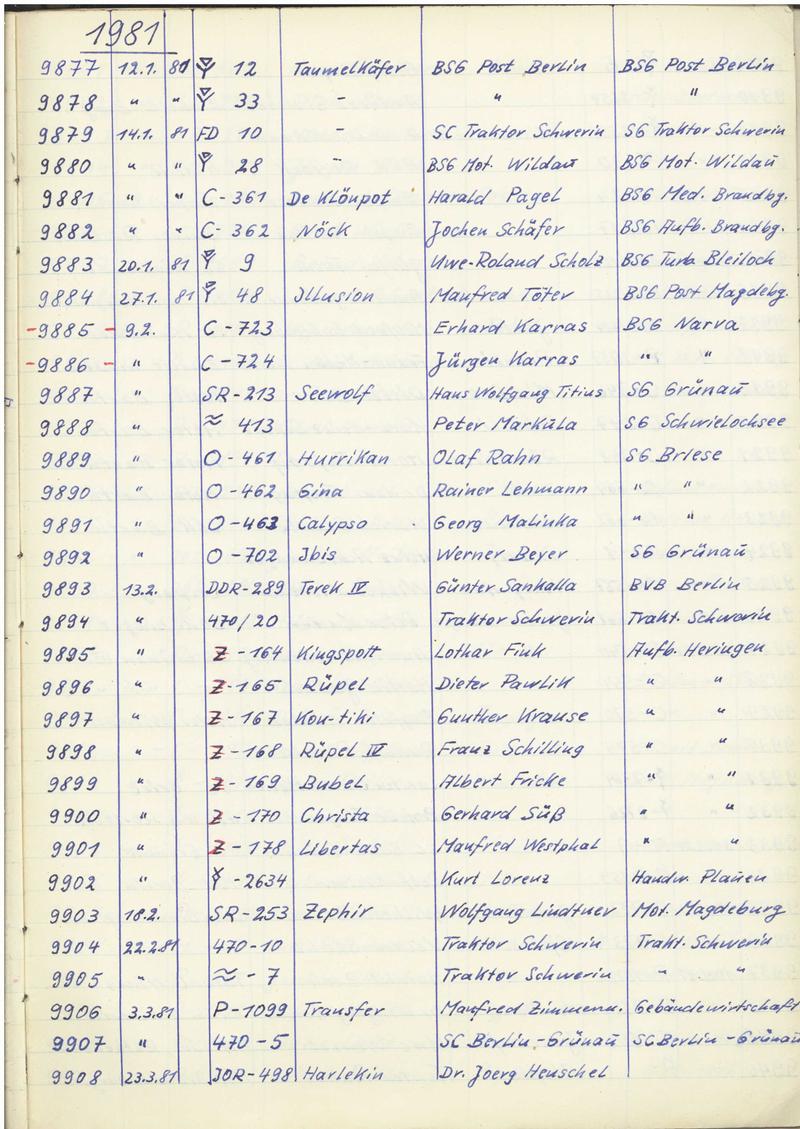 1981
9877 12.1. 81 12 Taumelkäfer BSG Post Berlin BSG Post Berlin
9878 " " 33 - " "
9879 14.1. 81 FD 10 - SC Traktor Schwerin SG Traktor Schwerin
9880 " " 28 - BSG Mot. Wildau BSG Mot. Wildau
9881 " " C-361 De Klönpot Harald Pagel BSG Med. Brandbg.
9882 " " C-362 Nöck Jochen Schäfer BSG Aufb. Brandbg.
9883 20.1. 81 9 Uwe-Roland Scholz BSG Turb. Bleiloch
9884 27.1. 81 48 Illusion Manfred Töter BSG Post Magdebg.
-9885- 9.2. C-723 Erhard Karras BSG Narva
-9886- " C-724 Jürgen Karras " "
9887 " SR-213 Seewolf Hans Wolfgang Titius SG Grünau
9888 " ≈ 413 Peter Markula SG Schwielochsee
9889 " O-461 Hurrikan Olaf Rahn SG Briese
9890 " O-462 Gina Rainer Lehmann " "
9891 " O-463 Calypso Georg Malinka " "
9892 " O-702 Ibis Werner Beyer SG Grünau
9893 13.2. DDR-289 Terek IV Günter Sankalla BVB Berlin
9894 " 470/20 Traktor Schwerin Trakt. Schwerin
9895 " Z-164 Kingspott Lothar Fink Aufb. Heringen
9896 " Z-165 Rüpel Dieter Pawlik " "
9897 " Z-167 Kon-tiki Gunther Krause " "
9898 " Z-168 Rüpel IV Franz Schilling " "
9899 " Z-169 Bubel Albert Fricke " "
9900 " Z-170 Christa Gerhard Süß " "
9901 " Z-178 Libertas Manfred Westphal " "
9902 " Y-2634 Kurt Lorenz Handw. Plauen
9903 18.2. SR-253 Zephir Wolfgang Lindtner Mot. Magdeburg
9904 22.2.81 470-10 Traktor Schwerin Trakt. Schwerin
9905 " ≈-7 Traktor Schwerin " "
9906 3.3.81 P-1099 Transfer Manfred Zimmerm. Gebäudewirtschaft
9907 " 470-5 SC Berlin-Grünau SC Berlin-Grünau
9908 23.3.81 JOR-498 Harlekin Dr. Joerg Henschel